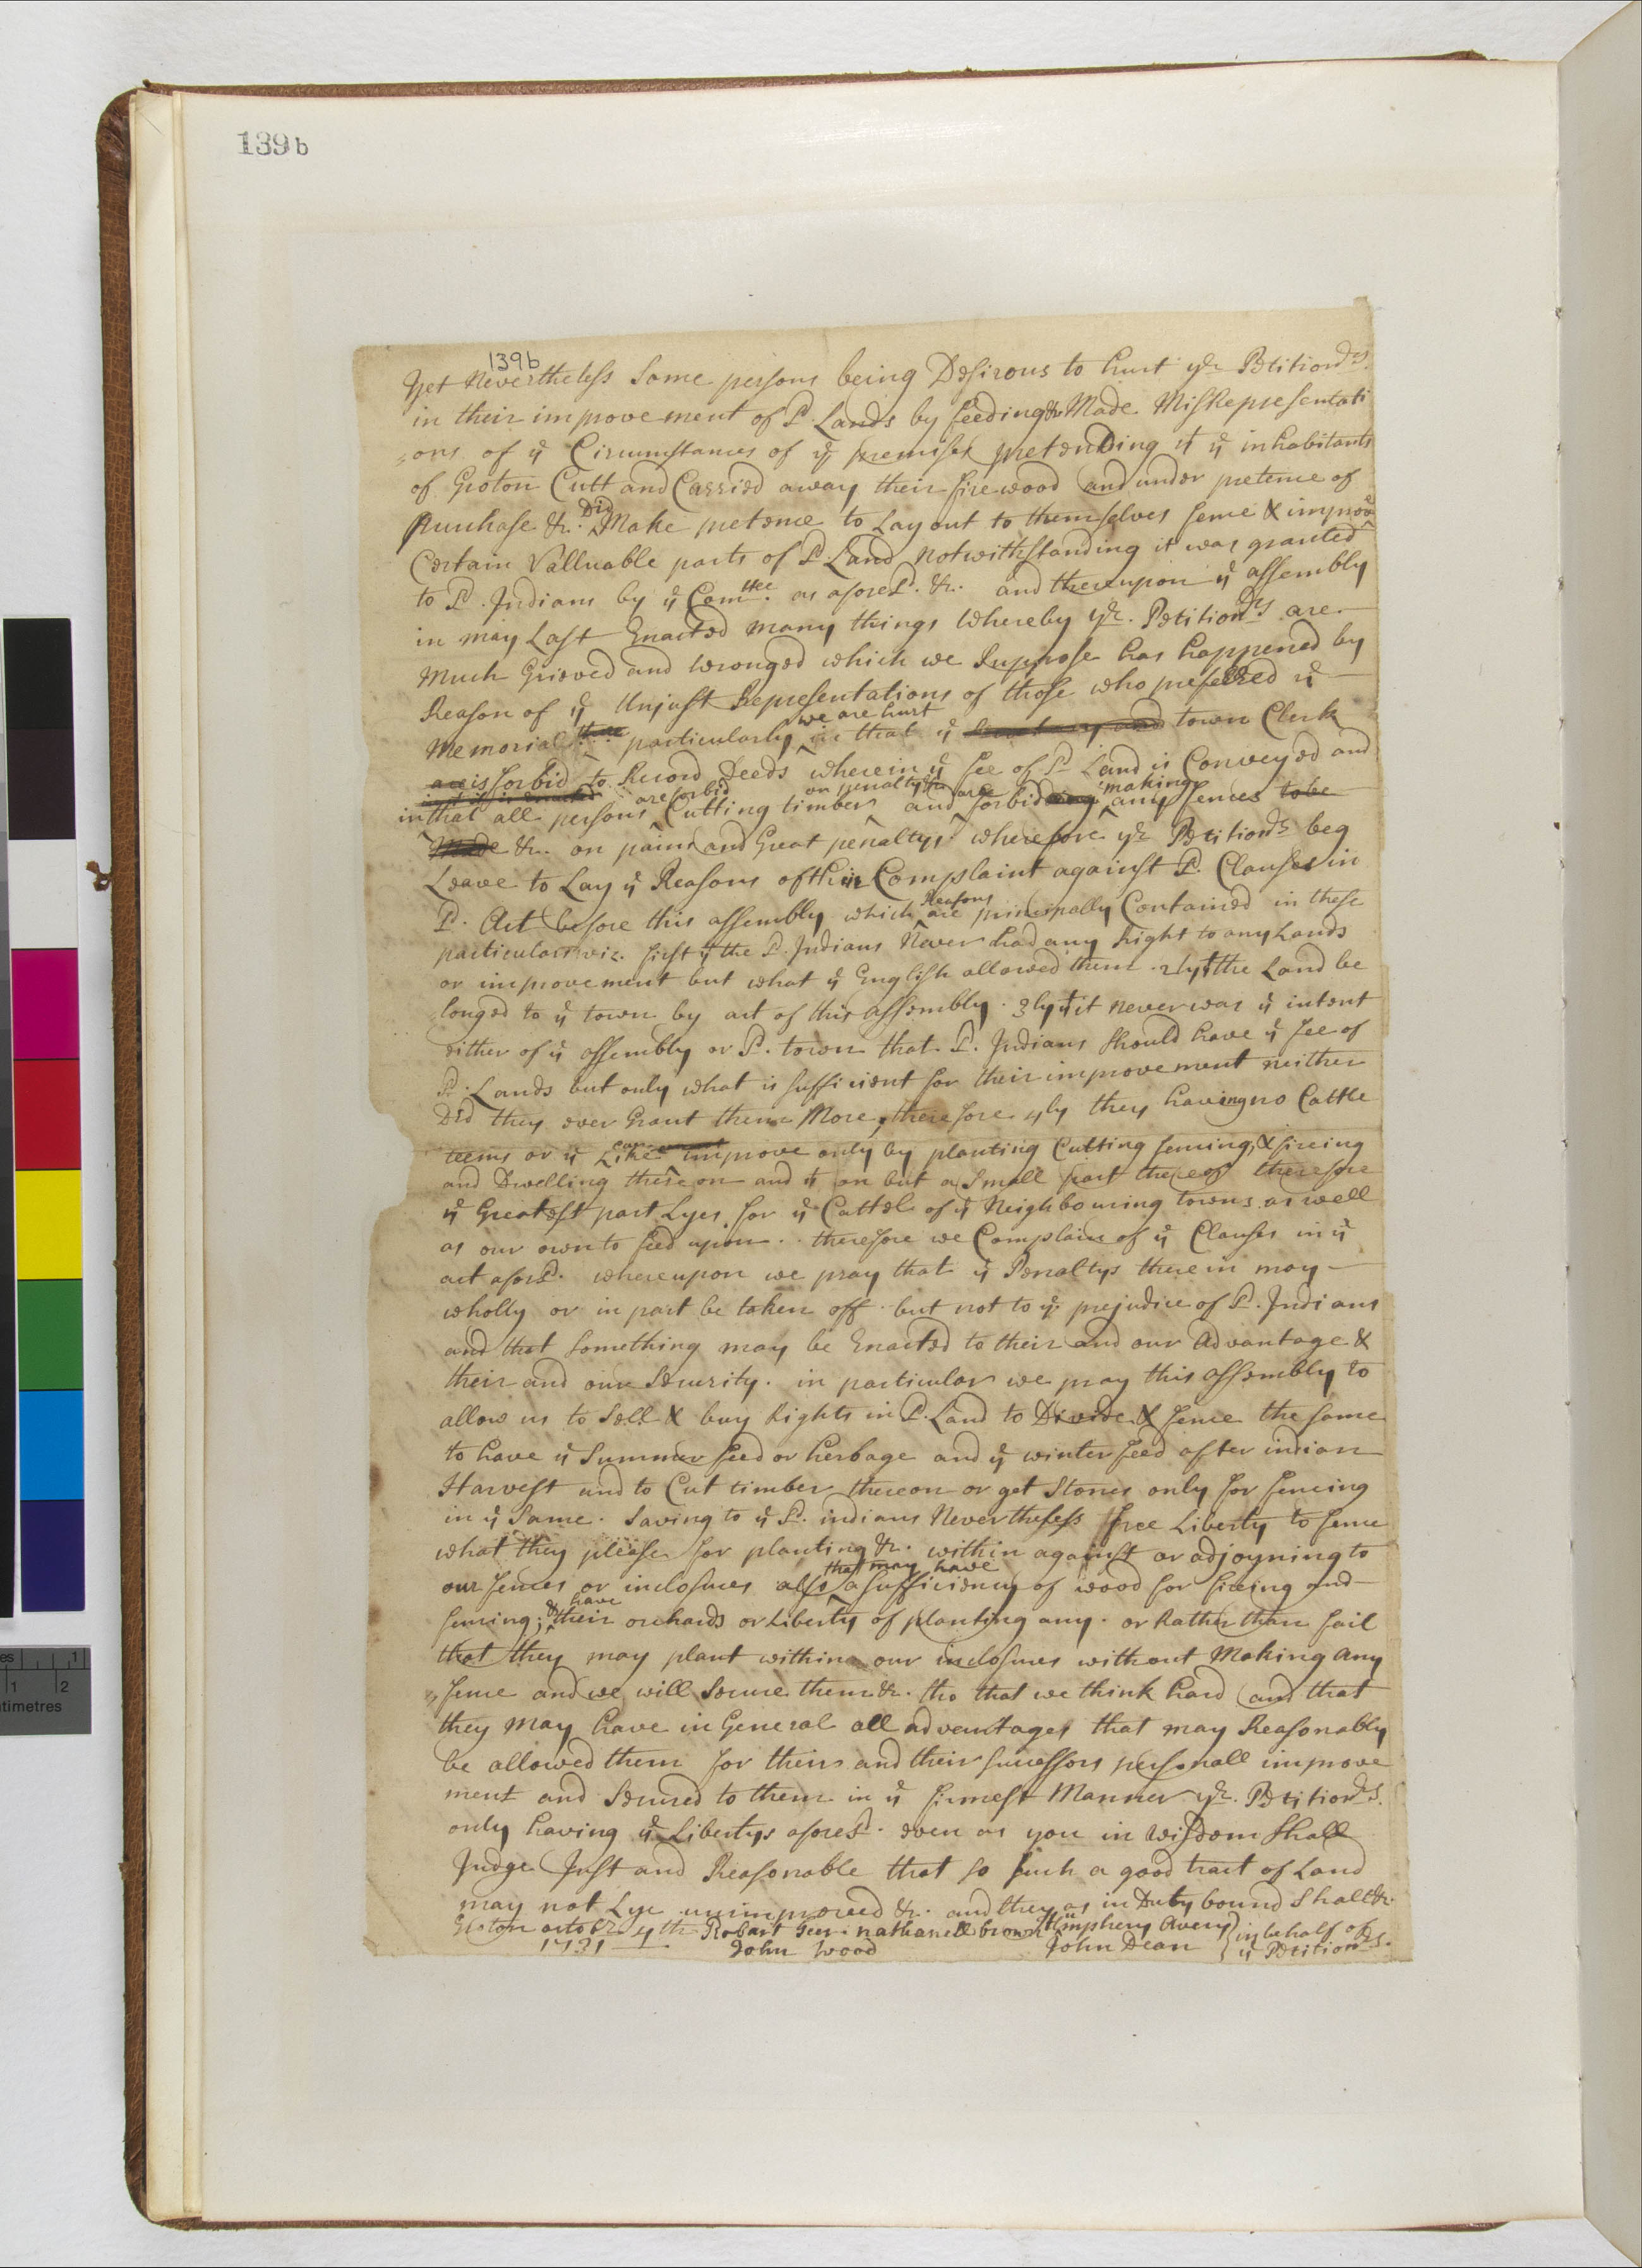 139b
139b
Yet Nevertheless Some persons being Desirous to hurt yr Petitionrs
in their improvement of sd Lands by feeding &c Made MisRepresentati
ons of ye Circumstances of ye premises pretending yt ye inhabitants
of Groton Cutt and Carried away their fire wood and under pretence of
Purchase &c. Did Make pretence to Lay out to themselves fence & improve
Certain Valluable parts of sd Land notwithstanding it was granted
to sd Indians by ye Comttee as aforesd. &c. and thereupon ye assembly
in may Last Enacted many things Whereby yr. Petitionrs are
Much Grieved and Wronged which we Suppose has happened by
Reason of ye Unjust Representations of those who preferred ye
we are hurt
Memorial particularly in that ye town Clerk
is forbid to Record Deeds wherein ye fee of sd Land is Conveyed and
are forbid on penalty &c are making
in that all persons Cutting timber and forbid any fences to be
Made &c. on pains and Great penaltys wherefore yr Petitionrs beg
Leave to Lay ye Reasons of their Complaint against sd. Clauses in
Reasons
sd. Act before this assembly which are principally Contained in these
particulars viz. first yt the sd Indians Never had any Right to any Lands
or improvement but what ye English allowed them. 2ly yt the Land be
longed to ye town by act of this assembly. 3ly yt it never was ye intent
either of ye assembly or sd. town that sd. Indians Should have ye fee of
sd. Lands but only what is sufficient for their improvement neither
Did they ever Grant them More, therefore 4ly they having no Cattle
can
teems or ye Like improve only by planting Cutting fencing, & fireing
and Dwelling thereon and yt on but a Small part thereof therefore
ye Greatest part Lyes for ye Cattel of ye Neighbouring towns as well
as our own to feed upon. therefore we Complain of ye Clauses in ye
act aforesd. whereupon we pray that ye Penaltys therein may
wholly or in part be taken off but not to ye prejudice of sd. Indians
and that something may be Enacted to their and our Advantage &
their and our Security. in particular we pray this assembly to
allow us to Sell & buy Rights in sd. Land to Divide & fence the same
to have ye Summer feed or herbage and ye winter feed after indian
Harvest and to Cut timber thereon or get Stones only for fencing
in ye Same. Saving to ye sd. indians Nevertheless free Liberty to fence
what they please for planting &c. within against or adjoyning to
that may have
our fences or inclosures also a sufficiency of wood for fireing and
& have
fencing; their orchards or Liberty of planting any. or Rather than fail
that they may plant within our inclosures without Making any
fence and we will Secure them &c. tho that we think hard and that
they may have in General all advantages that may Reasonably
be allowed them for theirs and their successors personall improve
ment and Secured to them in ye firmest Manner yr. Petitionrs.
only having ye Libertys aforesd. even as you in Wisdom Shall
Judge Just and Reasonable that so such a good tract of Land
may not Lye unimproved &c. and they as in Duty bound Shall &c.
Groton octobr 4th Robart Geer nathanell brown Humphery Avery in behalf of
1731 John Wood John Dean ye Petitionrs.